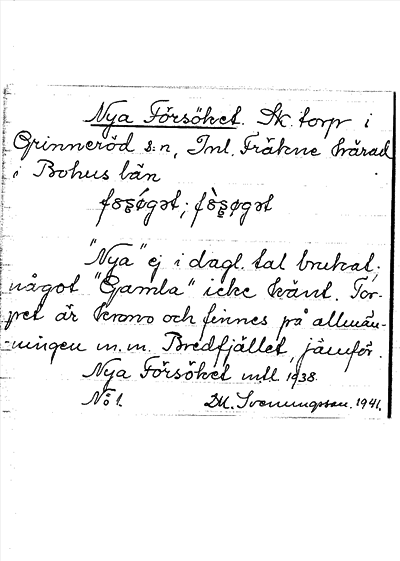 Nya Försöket. Sk. torp i
Grinneröd s:n, Inl. Fräkne härad
i Bohus län
"Nya" ej i dagl. tal brukat;
något "Gamla" icke känt. Tor-
pet är krono och finnes på allmän-
-ningen m.m. Bredfjället, jämför.
Nya Försöket mtl 1938.
No 1. D.M. Svenungsson. 1941.